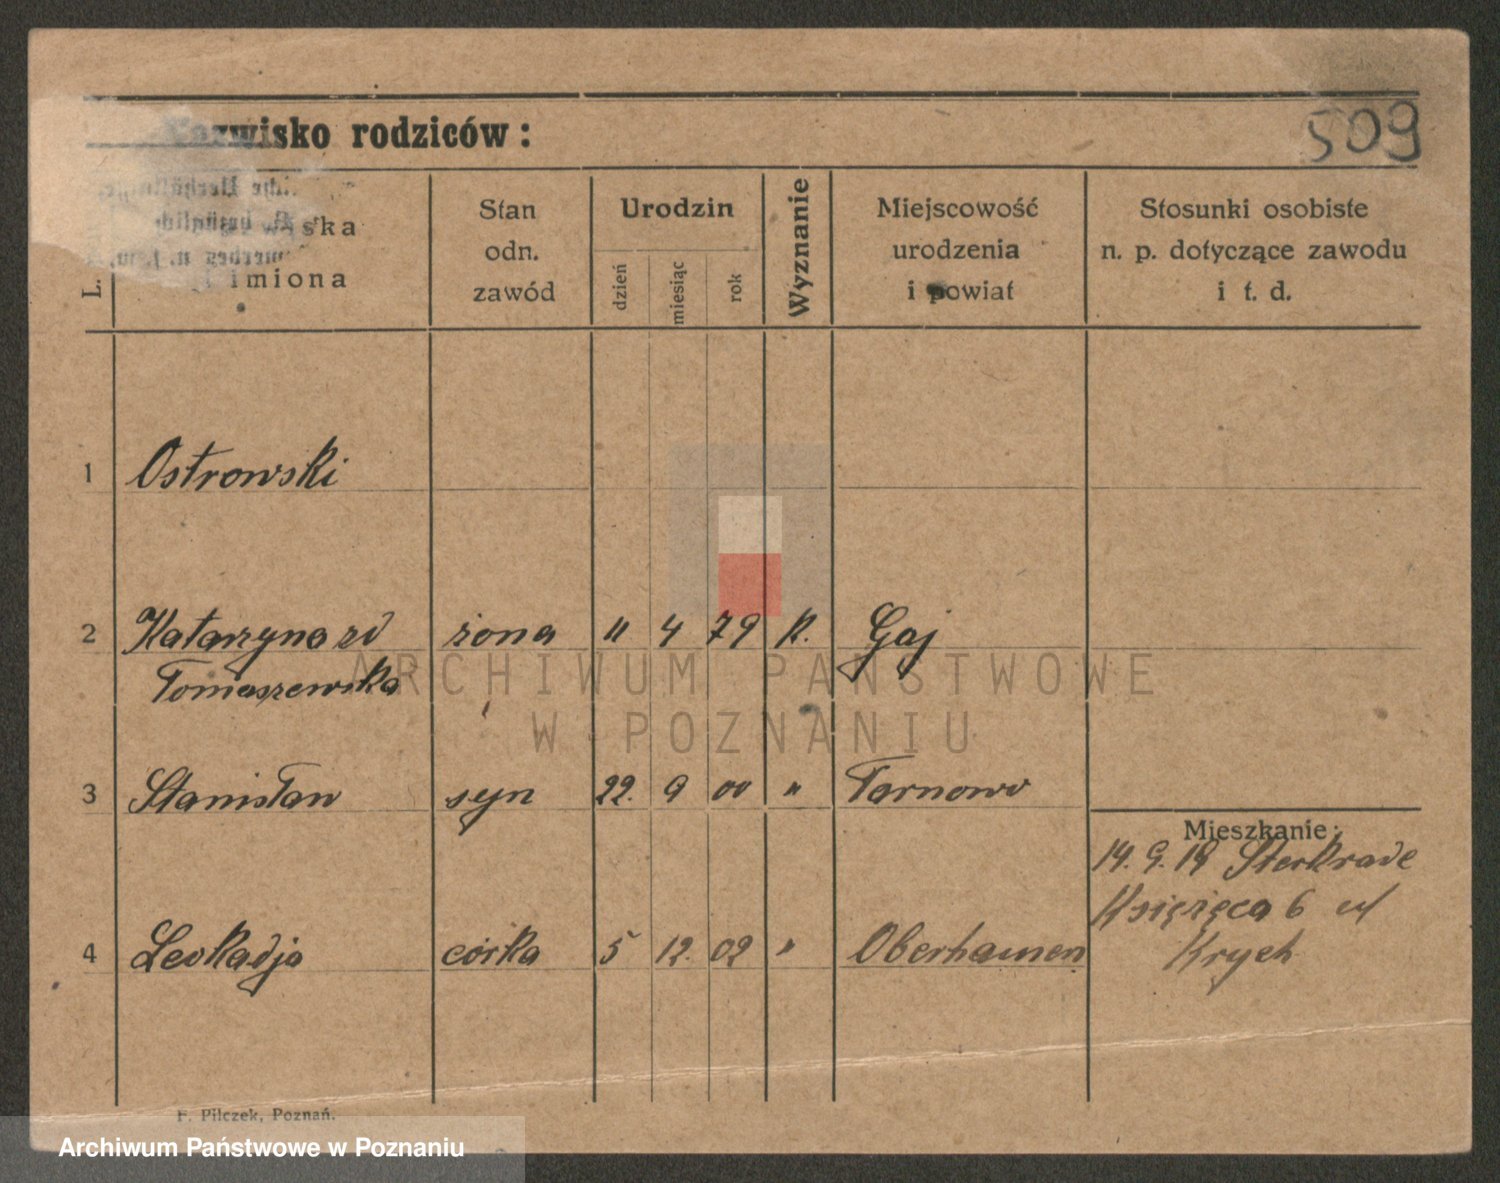 509
Nazwisko rodziców:
L.
Nazwiska
i imiona
Stan
odn.
zawód
Urodzin
dzień
miesiąc
rok
Wyznanie
Miejscowość
urodzenia
i powiat
Stosunki osobiste
n. p. dotyczące zawodu
i t. d.
1 Ostrowski
2 Katarzyna zd żona 11 4 79 k. Gaj
Tomaszewska
3 Stanisław syn 22. 9 00 " Tarnowo
Mieszkanie:
14. 9. 19 Sterkrade
Księżęca 6 u/
Krych
4 Leokadja córka 5 12. 02 " Oberhausen
F. Pilczek, Poznań.
ARCHIWUM PAŃSTWOWE
W POZNANIU
Archiwum Państwowe w Poznaniu